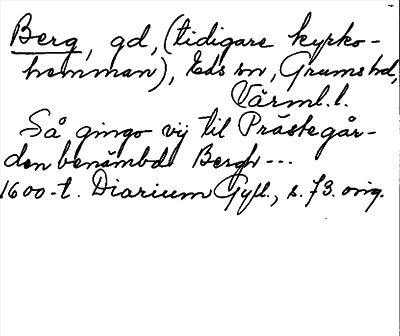 Berg, gd, (tidigare kyrko-
hemman), Eds sn, Grums hd,
Värml. l.
Så gingo vij til Prästegår-
den benämbd Bergh---
1600-t. Diarium Gyll., s. 73. orig.